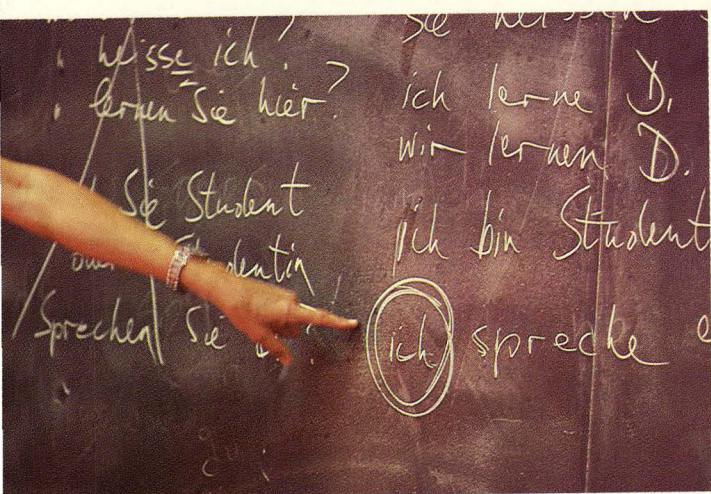 heisse ich?
lernen Sie hier?
Sie Student
Sprechen Sie
Sie heissen
ich lerne D.
wir lernen D.
ich bin Student
ich sprecke